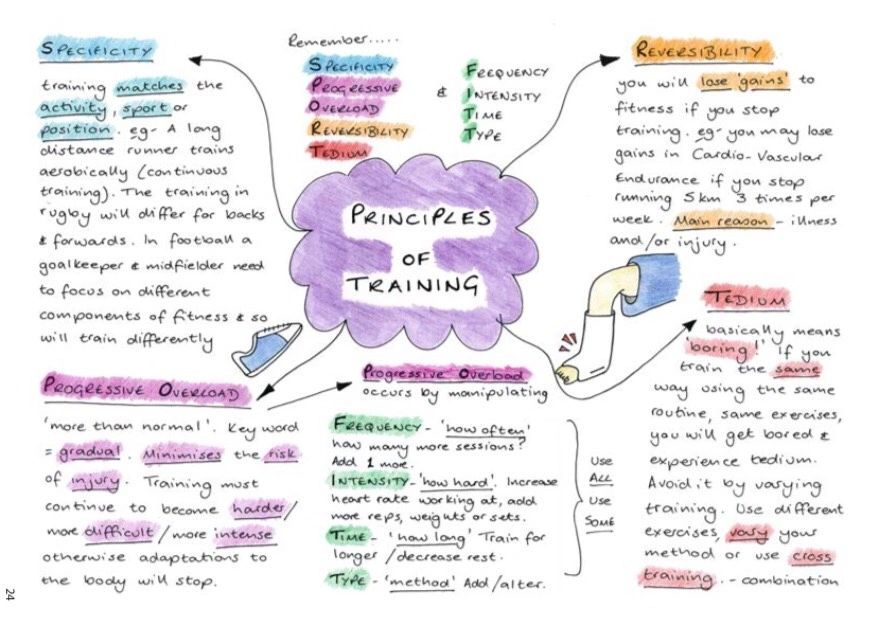 SPECIFICITY
training matches the
activity, sport or
position. eg- A long
distance runner trains
aerobically (continuous
training). The training in
rugby will differ for backs
& forwards. In football a
goalkeeper & midfielder need
to focus on different
components of fitness & so
will train differently
Remember.....
SPECIFICITY
PROGRESSIVE
OVERLOAD
REVERSIBILITY
TEDIUM
& FREQUENCY
INTENSITY
TIME
TYPE
PRINCIPLES
OF
TRAINING
REVERSIBILITY
you will lose 'gains' to
fitness if you stop
training. eg- you may lose
gains in Cardio-Vascular
Endurance if you stop
running 5km 3 times per
week. Main reason - illness
and/or injury.
TEDIUM
basically means
'boring!' If you
train the same
way using the same
routine, same exercises,
you will get bored &
experience tedium.
Avoid it by varying
training. Use different
exercises, vary your
method or use cross
training. - combination
PROGRESSIVE OVERLOAD
'more than normal'. Key word
= gradual. Minimises the risk
of injury. Training must
continue to become harder/
more difficult/more intense
otherwise adaptations to
the body will stop.
Progressive Overload
occurs by manipulating
FREQUENCY - 'how often'
how many more sessions?
Add 1 more.
INTENSITY - 'how hard'. Increase
heart rate working at, add
more reps, weights or sets.
TIME - 'how long' Train for
longer/decrease rest.
TYPE - 'method' Add/alter.
Use
ALL
Use
SOME
24